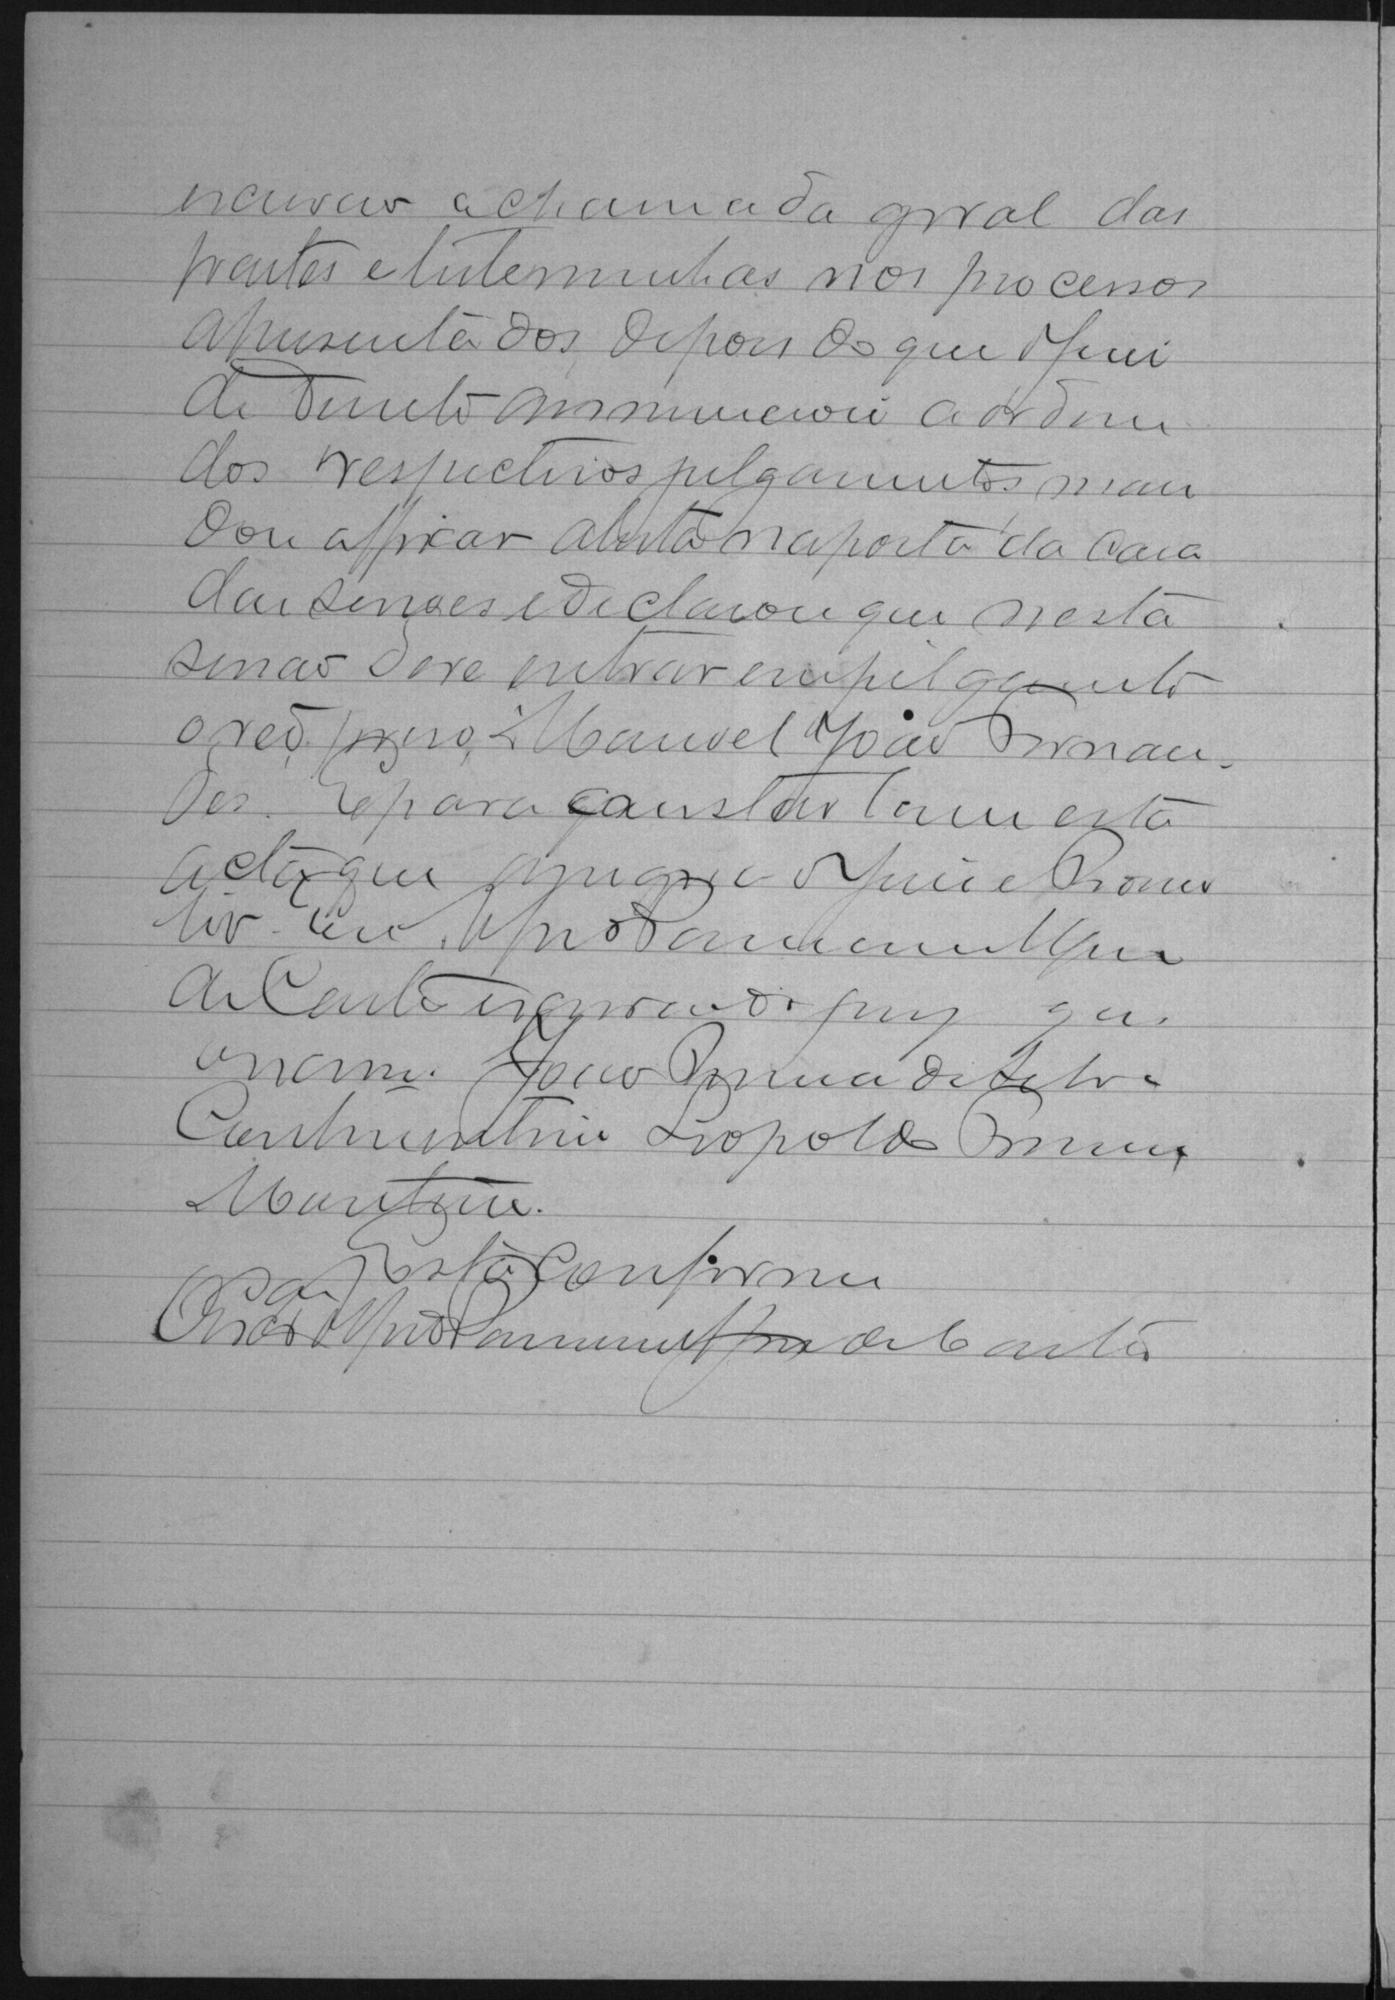 escrivão a chamada geral das
partes e testemunhas nos processos
apresentados, depois do que o Juiz
de Direito annunciou a ordem
dos respectivos julgamentos, man
dou affixar a lista na porta da casa
das sessões e declarou que nesta
sessão deve entrar em julgamento
o reo, preso, Manoel João Fernan-
des. E para constar lavrei esta
acta que assigna o Juiz e Promo
tor. Eu,
de Couto escrivão do jury que
escrevi. João Pereira da Silva
Leopoldo Pereira
Martins.
Está conforme
O Escrivão do Jury de Couto